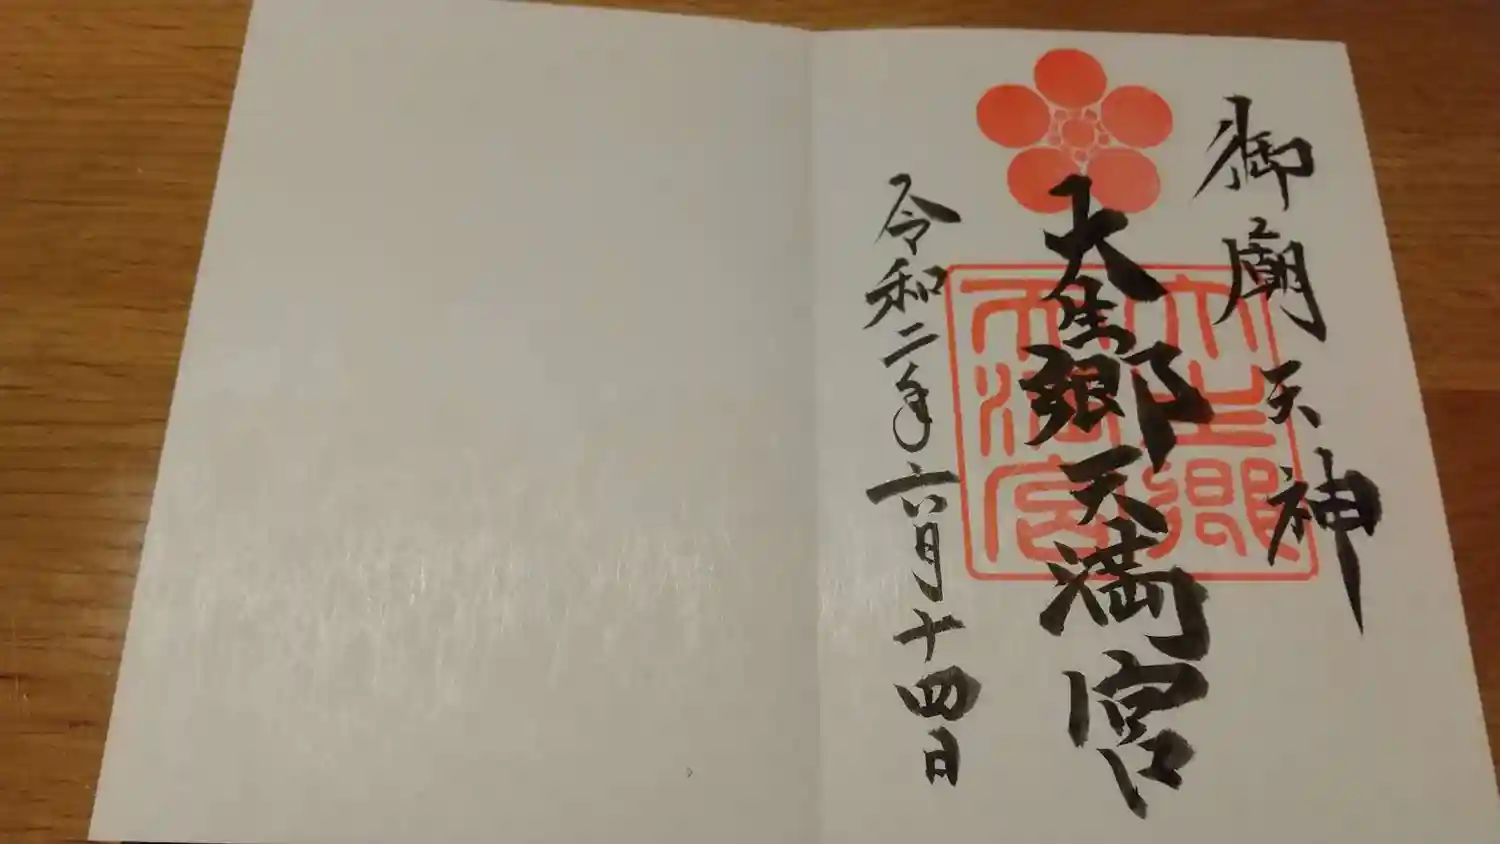 御廟天神
大生郷天満宮
大生郷
天満宮
令和二年六月十四日